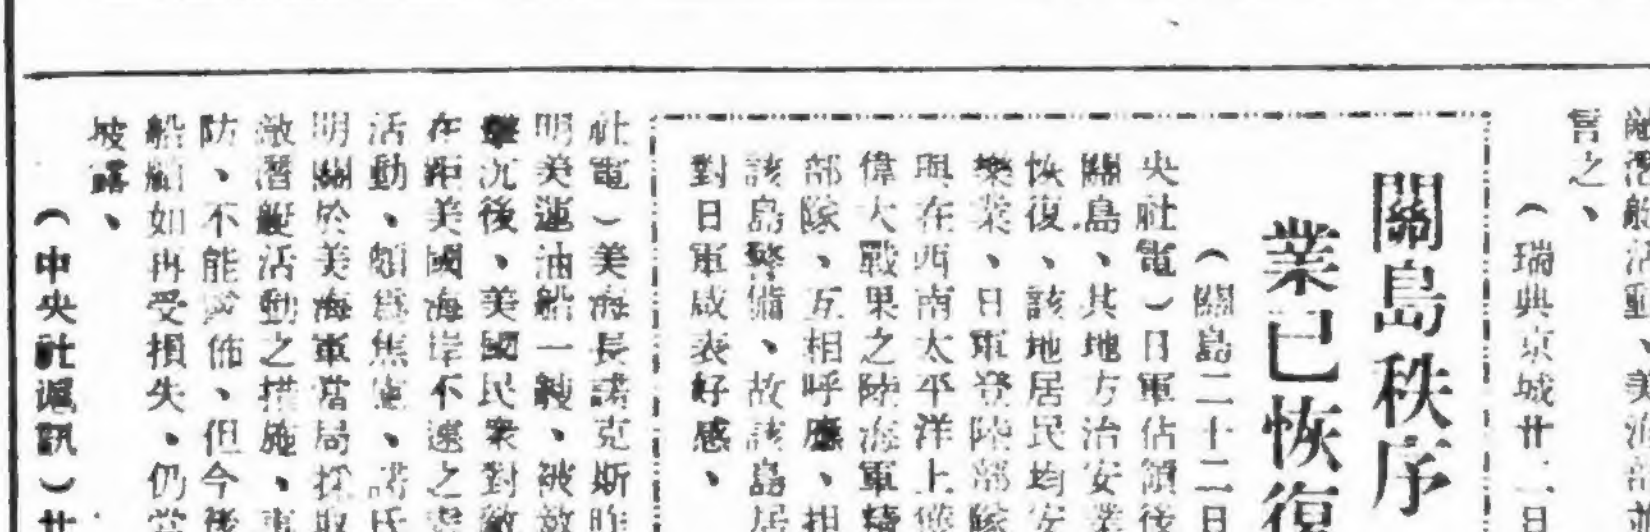 敵潛艇活動、美海部
言之、
（瑞典京城廿一日
關島秩序
業已恢復
（關島二十二日
央社電）日軍佔領後
關島、其地方治安業
恢復、該地居民均安
樂業、日軍登陸部隊
與在西南太平洋上
偉大戰果之陸海軍
部隊、互相呼應、担
該島警備、故該島居
對日軍咸表好感、
社電）美海長諾克斯昨
明美運油船一艘、被敵
擊沉後、美國民衆對敵
在距美國海岸不遠之
活動、頗爲焦慮、諾氏
明關於美海軍當局採取
敵潛艇活動之措施、事
防、不能 佈、但今後
船舶如再受損失、仍當
披露、
（中央社滬訊）廿